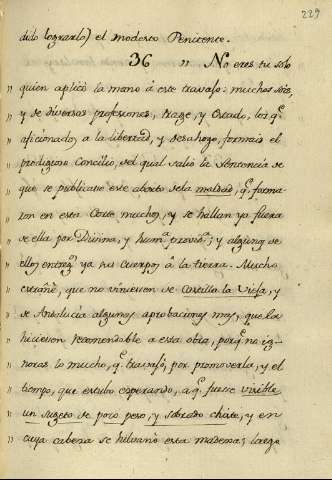 229
dido lograrlo) el modesto Penitente.
36 " No eres tu solo
" quien aplicò la mano à este travajo: muchos sois,
" y de diversas profesiones, traze, y estado, los q.^e
" aficionados a la libertad, y desahogo, formais el
" prodigioso Concilio, del qual saliò la sentencia de
" que se publicase este aborto de la maldad, q.^e forma-
" ron en esta Corte muchos, y se hallan ya fuera
" de ella por Divina, y hum.^a provid.^a; y algunos de
" ellos entreg.^n ya sus cuerpos à la tierra. Mucho
" extrañè, que no viniesen de Castilla la Vieja, y
" de Andalucia algunas aprobaciones mas, que la
" hiciesen recomendable a esta obra, porq.^e no ig-
" noras lo mucho, q.^e travajò, por promoverla, y el
" tiempo, que estubo esperando, a q.^e fuese visible
" un sugeto de poco peso, y sobrado chiste, y en
" cuya cabeza se hilvanò esta madexa; luego